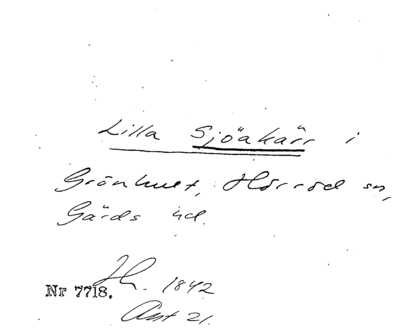 Lilla Sjöakärr i
Grönhult, Hörröd sn,
Gärds hd.
Nr 7718. 1842
21.